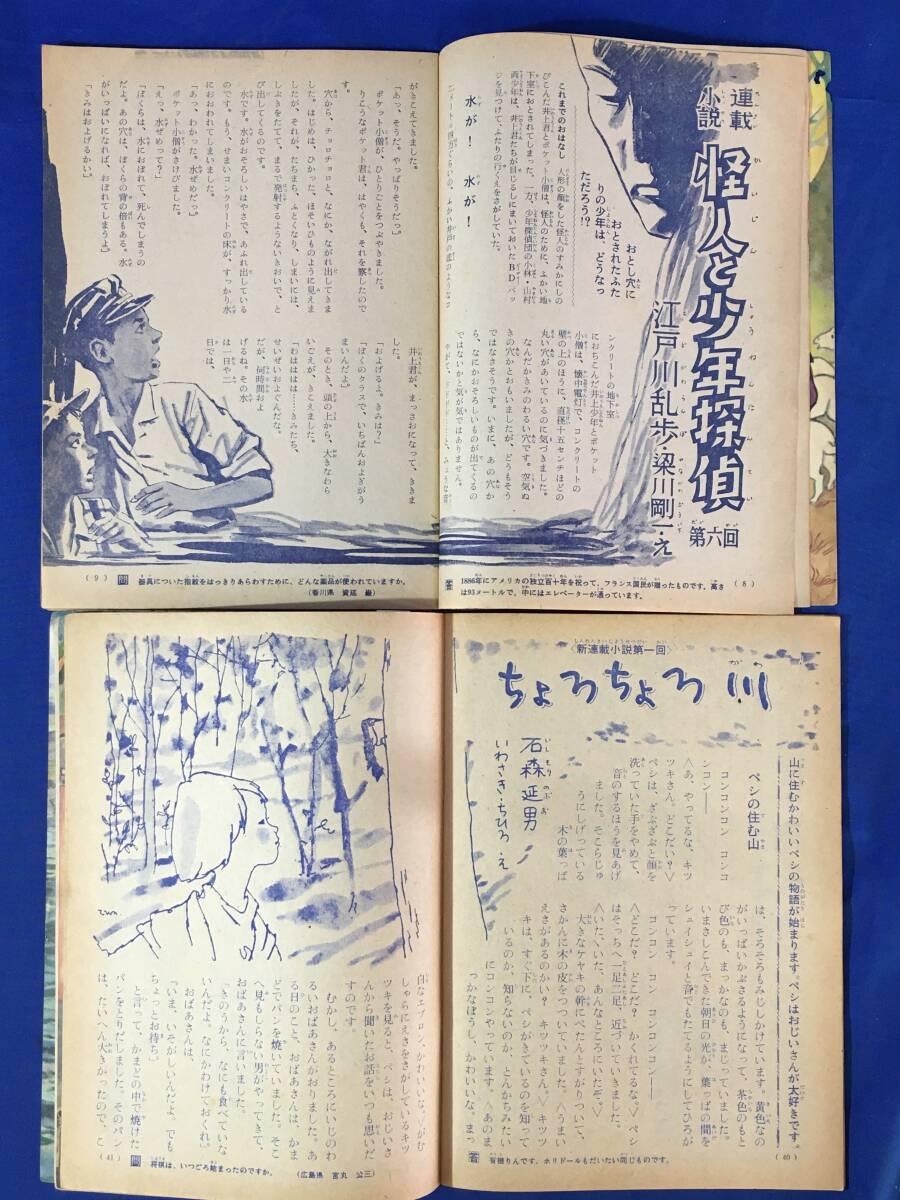 連載
小説
怪人と少年探偵
第六回
江戸川乱歩・梁川剛一・え
おとし穴に
おとされたふた
りの少年は、どうなっ
ただろう!?
これまでのおはなし 人形の顔をした怪人のすみかにしの
びこんだ井上君とポケット小僧は、怪人のために、ふかい地
下室におとされてしまった。一方、少年探偵団の小林・山村
両少年は、井上君たちが目じるしにまいておいたBDバッ
ジを見つけて、ふたりの行くえをさがしていた。
水が! 水が!
ンクリートの地下室
におちこんだ井上少年とポケット
小僧は、懐中電灯で、コンクリートの
壁の上のほうに、直径十五センチほどの
丸い穴があいているのに気づきました。
なんだかきみのわるい穴です。空気ぬ
きの穴かとおもいましたが、どうもそう
ではなさそうです。いまに、あの穴か
ら、なにかおそろしいものが出てくるの
ではないかと気が気ではありません。
(8)
答 1886年にアメリカの独立百十年を祝って、フランス国民が贈ったものです。高さ
は93メートルで、中にはエレベーターが通っています。
がきこえてきました。
「あっ、そうだ。やっぱりそうだっ」
ポケット小僧が、ひとりごとをつぶやきました。
りこうなポケット君は、はやくも、それを察したので
す。
穴から、チョロチョロと、なにか、ながれ出してきま
した。はじめは、ひかった、ほそいひものように見えま
したが、それが、たちまち、ふとくなり、しまいには、
しぶきをたてて、まるで発射するようないきおいで、と
び出してくるのです。
水です。水がおそろしいはやさで、あふれ出している
のです。もう、せまいコンクリートの床が、すっかり水
におおわれてしまいました。
「あっ、わかった。水ぜめだっ」
ポケット小僧がさけびました。
「えっ、水ぜめって?」
「ぼくらは、水におぼれて、死んでしまうの
だよ。あの穴は、ぼくらの背の倍もある。水
がいっぱいになれば、おぼれてしまうよ」
「きみはおよげるかい」
井上君が、まっさおになって、ききま
した。
「およげるよ。きみは?」
「ぼくのクラスで、いちばんおよぎがう
まいんだよ」
そのとき、頭の上から、大きなわら
いごえが、きこえました。
「わはははは……きみたち、
せいぜいおよぐんだな。
だが、何時間およ
げるね。その水
は一日や二
日では、
(9)
問 器具についた指紋をはっきりあらわすために、どんな薬品が使われていますか。
(香川県 資延 巌)
〈新連載小説第一回〉
ちょろちょろ川
石森延男
いわさき・ちひろ え
山に住むかわいいペシの物語が始まります。ペシはおじいさんが大好きです。
ペシの住む山
コンコンコン コンコ
ンコン——
〈あ、やってるな、キツ
ツキさん。どこだい?〉
ペシは、ざぶざぶと顔を
洗っていた手をやめて、
音のするほうを見あげ
ました。そこらじゅ
うにしげっている
木の葉っぱ
は、そろそろもみじしかけています。黄色なの
がいっぱいかぶさるようになって、茶色のもと
び色のも、まっかなのも、まじっていました。
いまさしこんできた朝日の光が、葉っぱの間を
シュイシュイと音でもたてるようにしてひろが
っています。
コンコン コン コンコンコン——
〈どこだ? どこだ? かくれてるな。〉ペシ
はそっちへ一足二足、近づいていきました。
〈いた、いた、あんなところにいたぞ。〉
大きなケヤキの幹にべたんとすがりついて、
さかんに木の皮をつついています。〈うまい
えさがあるのかい? キツツキさん。〉キツツ
キは、すぐ下に、ペシがきているのを知って
いるのか、知らないのか、とんかちみたい
にコンコンやっています。あのま
っかなぼうし、かわいいな。まっ
(40)
答 有機りんです。ホリドールもだいたい同じものです。
白なエプロン、かわいいな。がむ
しゃらにえさをさがしているキツ
ツキを見ると、ペシは、おじいさ
んから聞いたお話をいつも思いだ
すのです。
むかし、あるところにいじのわ
るいおばあさんがおりました。あ
る日のこと、おばあさんは、かま
どでパンを焼いていました。そこ
へ見もしらない男がやってきて、
おばあさんに言いました。
「きのうから、なにも食べていな
いんだよ。なにかわけておくれ」
おばあさんは、
「いま、いそがしいんだよ。でも
ちょっとお待ち」
と言って、かまどの中で焼けた
パンをとりだしました。そのパン
は、たいへん大きかったので、こ
(41)
問 将棋は、いつごろ始まったのですか。
(広島県 宮丸 公三)